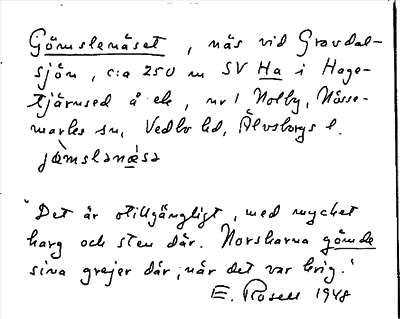 Gömslenäset, näs vid Grovdal-
sjön, c:a 250 m SV Ha i Hage-
tjärnsed å ek, nr 1 Nolby, Nösse-
marks sn, Vedbo hd, Älvsborgs l.
jømslanøsə
"Det är otillgängligt, med mycket
harg och sten där. Norskarna gömde
sina grejer där, när det var krig."
E. Rosell 1948